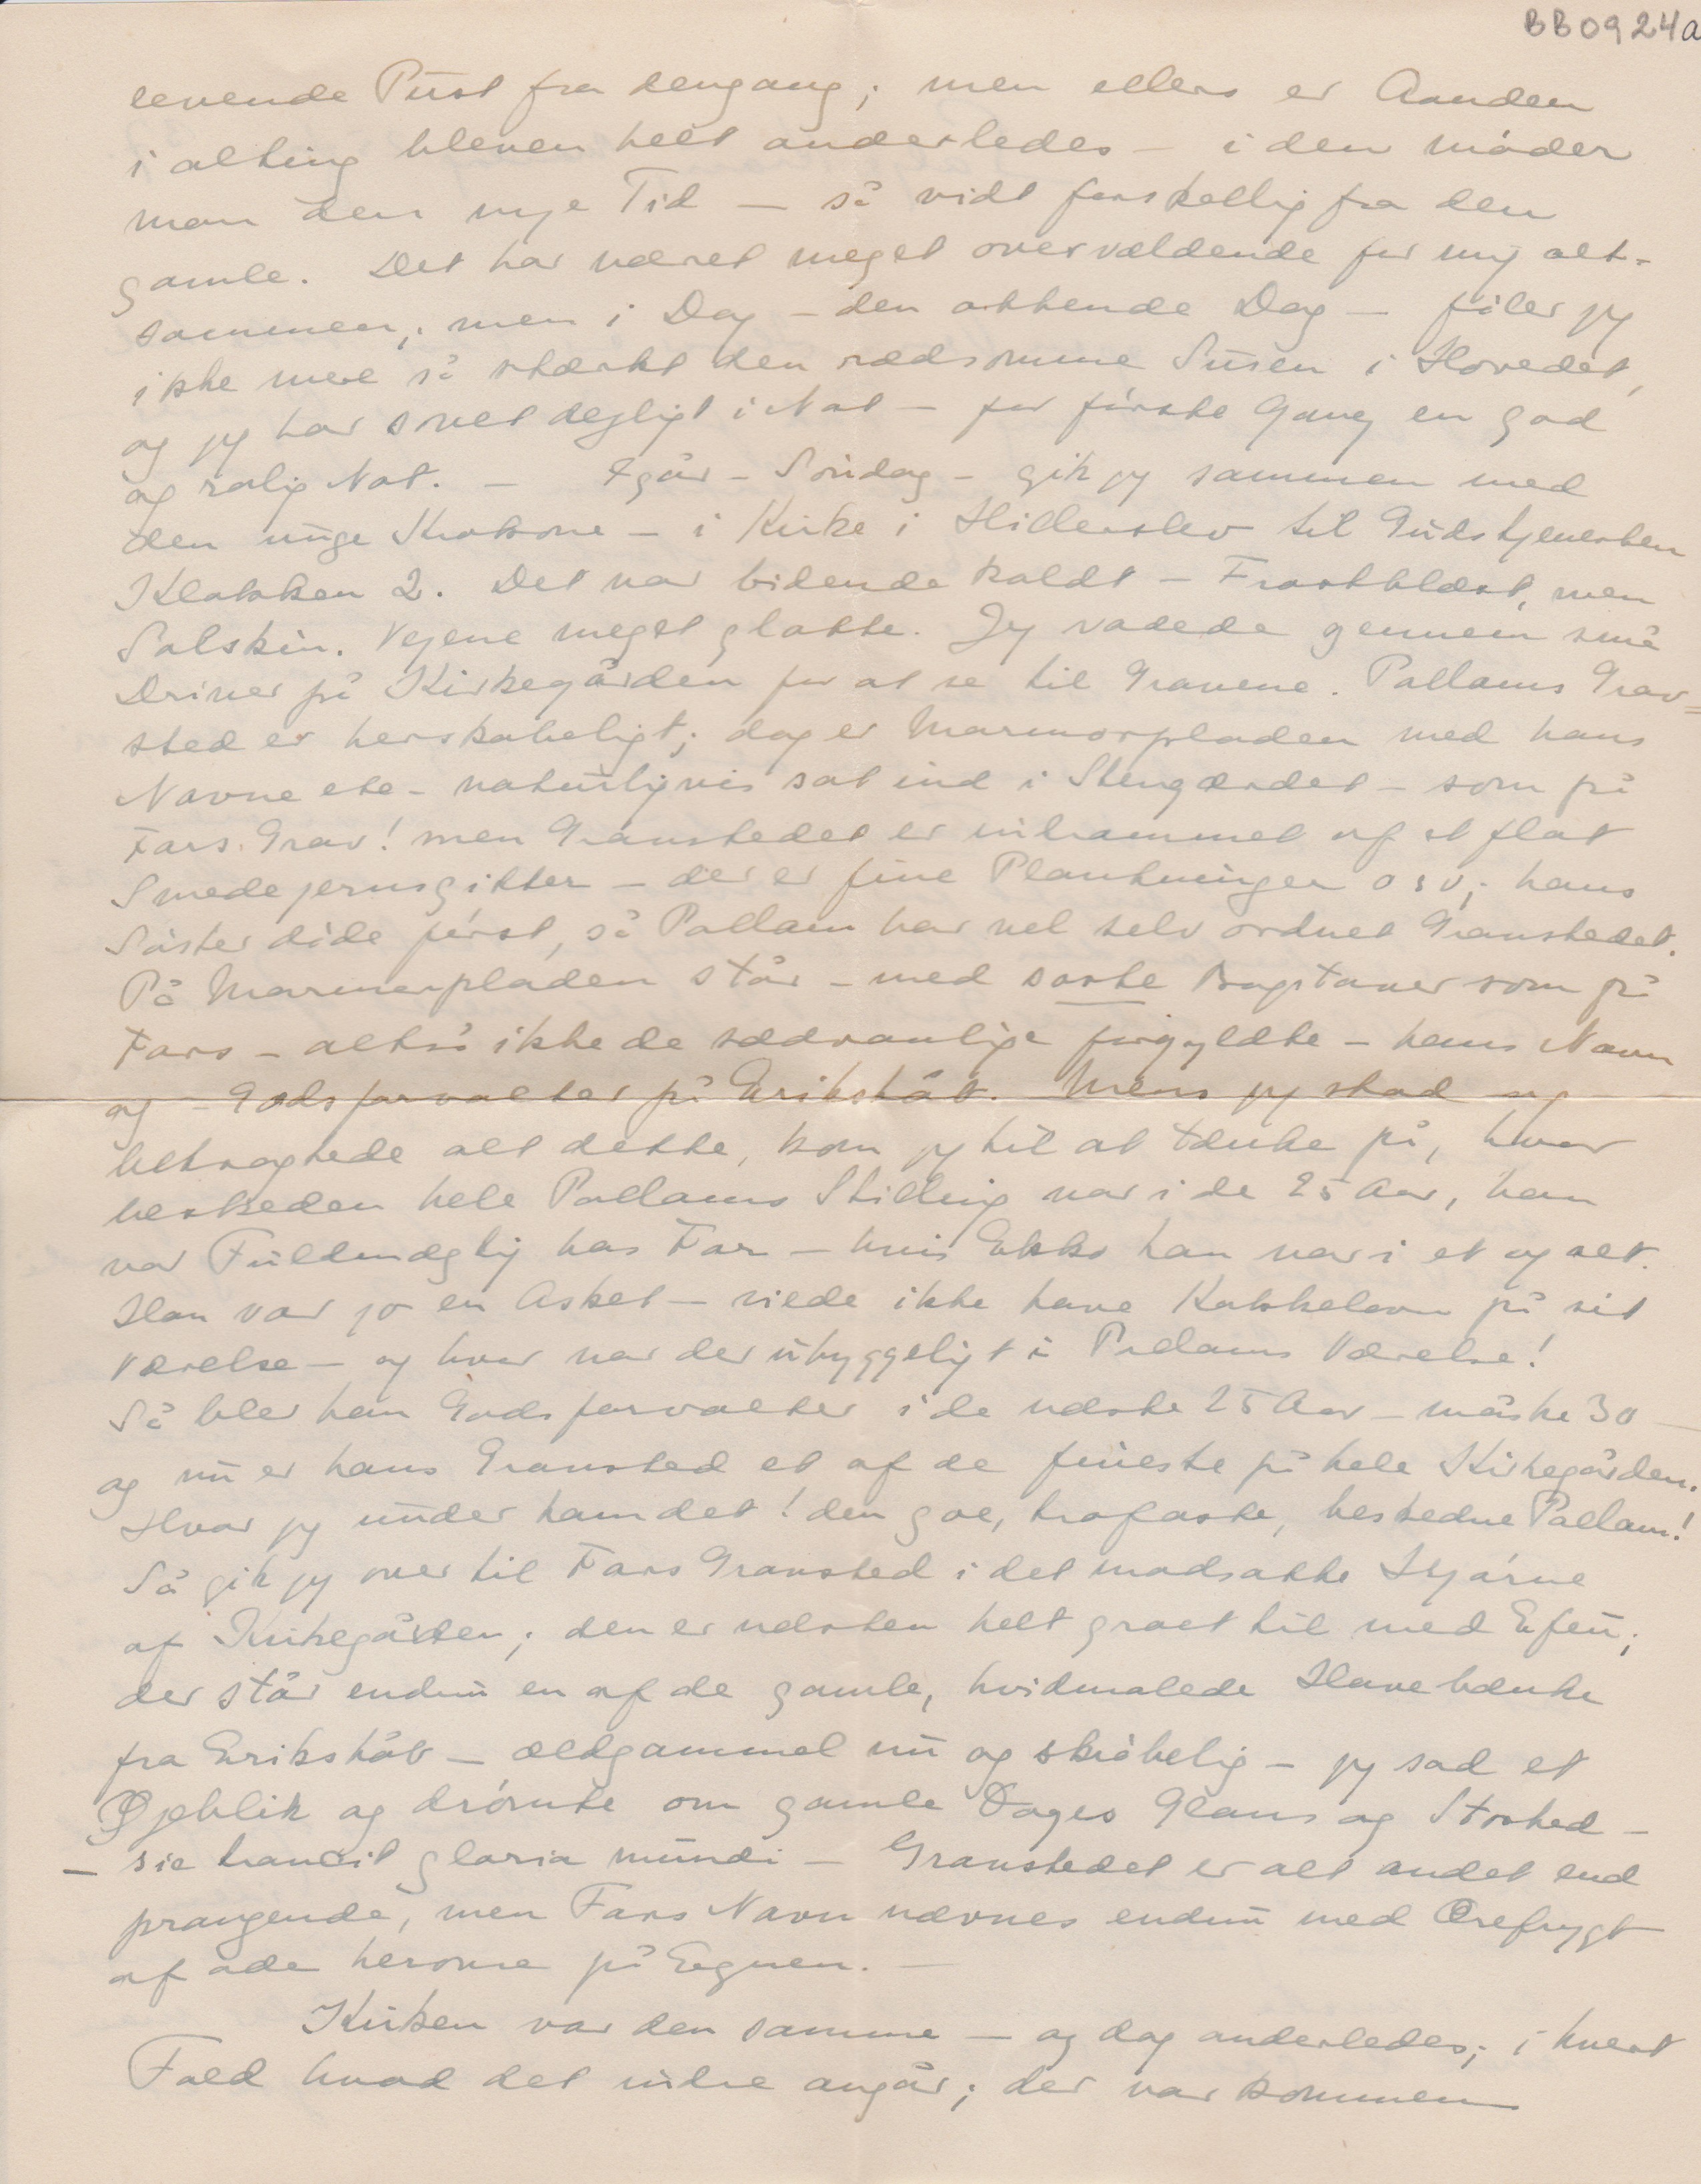 BB0924a
levende Pust fra dengang; men ellers er Aanden
i alting bleven helt anderledes – i den möder
man den nye Tid – så vidt forskellig fra den
gamle. Det har været meget overvældende for mig alt-
sammen; men i Dag – den ottende Dag – föler jeg
ikke mere så stærkt den rædsomme Susen i Hovedet,
og jeg har sovet dejligt i Nat – for förste Gang en god
og rolig Nat. – Igår – Söndag – gik jeg sammen med
den unge Krokone – i Kirke i Hillerslev til Gudstjenesten
Klokken 2. Det var bidende koldt – Frostblæst, men
Solskin. Vejene meget glatte. Jeg vadede gennem små
Driver på Kirkegården for at se til Gravene. Pallams Grav=
sted er herskabeligt; dog er Marmorpladen med hans
Navne etc – naturligvis sat ind i Stengærdet – som på
Fars Grav! men Gravstedet er indrammet af et flot
Smedejernsgitter – der er fine Plantninger osv; hans
Söster döde först, så Pallam har vel selv ordnet Gravstedet.
På Marmorpladen står – med sorte Bogstaver som på
Fars – altså ikke de sædvanlige forgyldte – hans Navn
og – Godsforvalter på Erikshåb. Mens jeg stod og
betragtede alt dette, kom jeg til at tænke på, hvor
beskeden hele Pallams Stilling var i de 25 Aar, han
var Fuldmægtig hos Far – hvis Ekko han var i et og alt.
Han var jo en Asket – vilde ikke have Kakkelovn på sit
Værelse – og hvor var der uhyggeligt i Pallams Værelse!
Så blev han Godsforvalter i de næste 25 Aar – måske 30 –
og nu er hans Gravsted et af de fineste på hele Kirkegården.
Hvor jeg under ham det! den goe, trofaste, beskedne Pallam!
Så gik jeg over til Fars Gravsted i det modsatte Hjörne
af Kirkegården; den er næsten helt groet til med Efeu;
der står endnu en af de gamle, hvidmalede Havebænke
fra Erikshåb – ældgammel nu og skröbelig – jeg sad et
Øjeblik og drömte om gamle Dages Glans og Storhed –
– sic transit gloria mundi – Gravstedet er alt andet end
prangende, men Fars Navn nævnes endnu med Ærefrygt
af alle herovre på Egnen. –
Kirken var den samme – og dog anderledes; i hvert
Fald hvad det indre angår; der var kommen